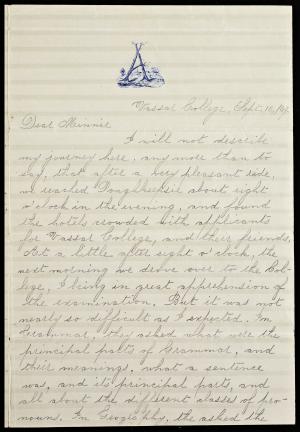 Vassar College, Sept. 16,
Dear Minnie
I will not describe
my journey here, any more than to
say, that after a very pleasant ride,
we reached Poughkeepsie about eight
o'clock in the evening, and found
the hotels crowded with applicants
for Vassar College, and their friends.
At a little after eight o'clock, the
next morning we drove over to the Col-
lege, I being in great apprehension of
the examination. But it was not
nearly so difficult as I expected. In
Grammar, they asked what were the
principal parts of Grammar, and
their meanings, what a sentence
was, and its principal parts, and
all about the different classes of pro-
nouns. In Geography, the asked the